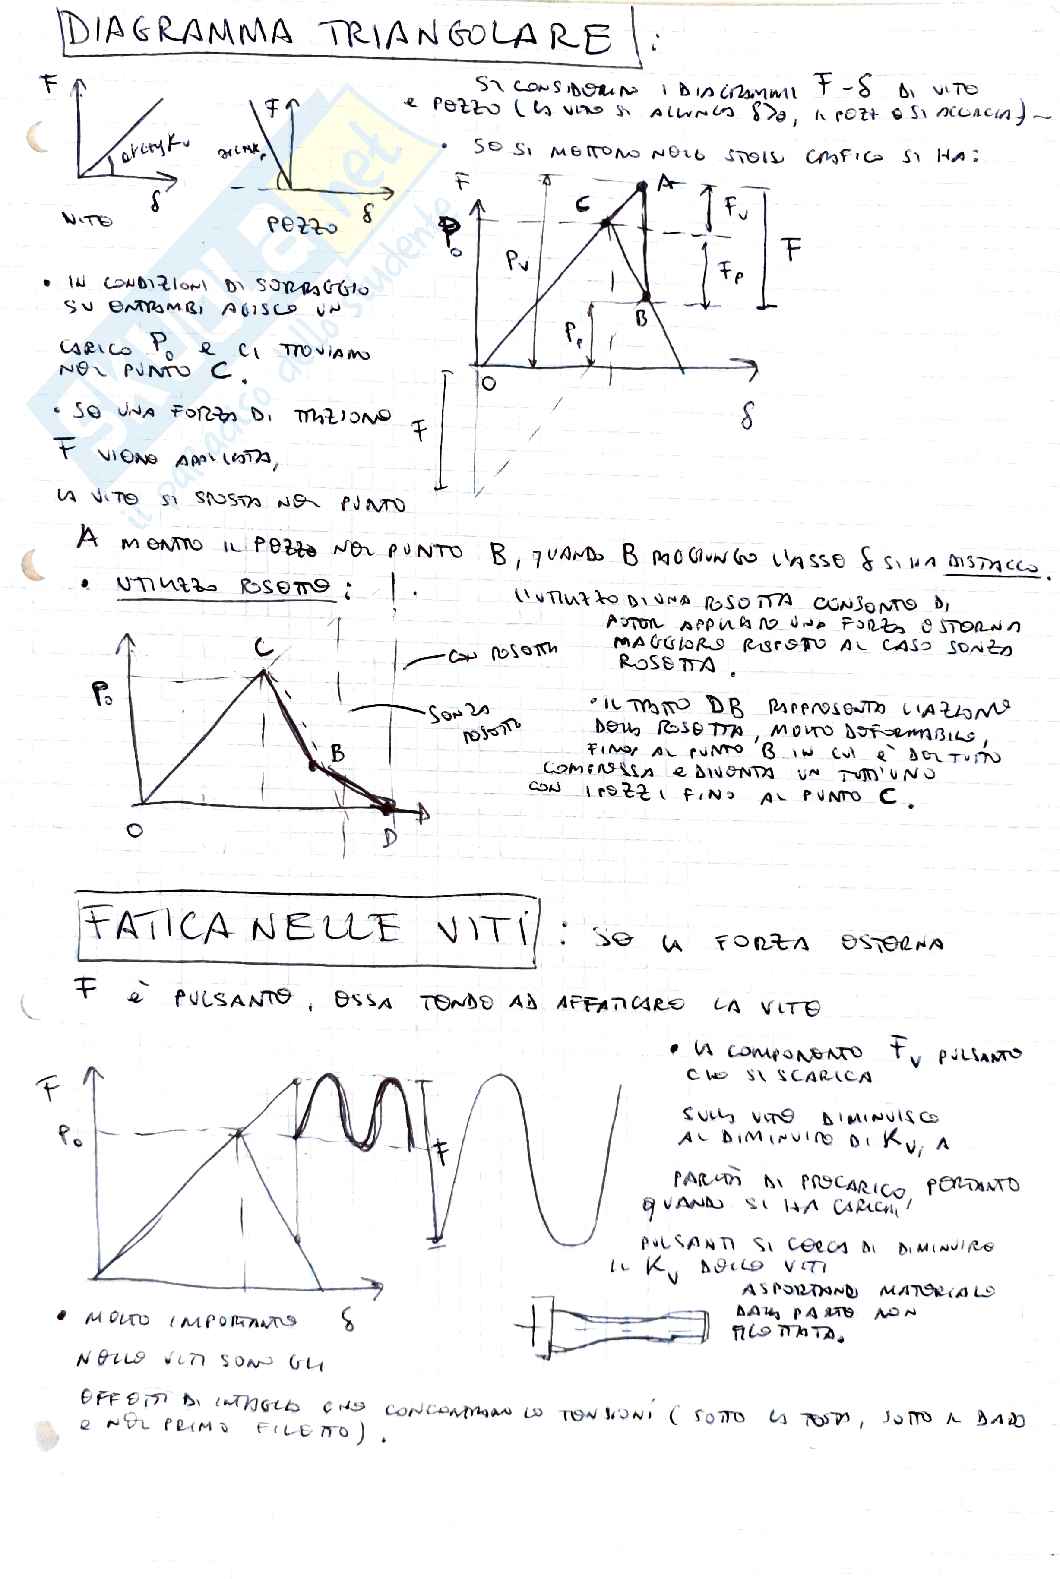 DIAGRAMMA TRIANGOLARE :
SI CONSIDERINO I DIAGRAMMI F-δ DI VITE
E PEZZO (LA VITE SI ALLUNGA δ>0, IL PEZZO SI ACCORCIA)
F
arctg Kv
δ
VITE
F
δ
PEZZO
• SE SI METTONO NELLO STESSO GRAFICO SI HA:
F
P₀
Pv
C
A
Fv
Fp
F
B
Pp
O
F
δ
• IN CONDIZIONI DI SERRAGGIO
SU ENTRAMBI AGISCE UN
CARICO P₀ E CI TROVIAMO
NEL PUNTO C.
• SE UNA FORZA DI TRAZIONE
F VIENE APPLICATA,
LA VITE SI SPOSTA NEL PUNTO
A MENTRE IL PEZZO NEL PUNTO B, QUANDO B RAGGIUNGE L'ASSE δ SI HA DISTACCO.
• UTILIZZO ROSETTE :
L'UTILIZZO DI UNA ROSETTA CONSENTE DI
POTER APPLICARE UNA FORZA ESTERNA
MAGGIORE RISPETTO AL CASO SENZA
ROSETTA.
C
P₀
CON ROSETTA
SENZA
ROSETTA
B
O
D
• IL TRATTO DB RAPPRESENTA L'AZIONE
DELLA ROSETTA, MOLTO DEFORMABILE,
FINO AL PUNTO B IN CUI È DEL TUTTO
COMPRESSA E DIVENTA UN TUTT'UNO
CON I PEZZI FINO AL PUNTO C.
FATICA NELLE VITI : SE LA FORZA ESTERNA
F È PULSANTE, ESSA TENDE AD AFFATICARE LA VITE
F
P₀
F
δ
• LA COMPONENTE Fv PULSANTE
CHE SI SCARICA
SULLA VITE DIMINUISCE
AL DIMINUIRE DI Kv, A
PARITÀ DI PRECARICO, PERTANTO
QUANDO SI HA CARICHI
PULSANTI SI CERCA DI DIMINUIRE
IL Kv DELLE VITI
ASPORTANDO MATERIALE
DALLA PARTE NON
FILETTATA.
• MOLTO IMPORTANTE
NELLE VITI SONO GLI
EFFETTI DI INTAGLIO CHE CONCENTRANO LE TENSIONI (SOTTO LA TESTA, SOTTO IL DADO
E NEL PRIMO FILETTO).
SKUOLA.net
il paradiso dello studente